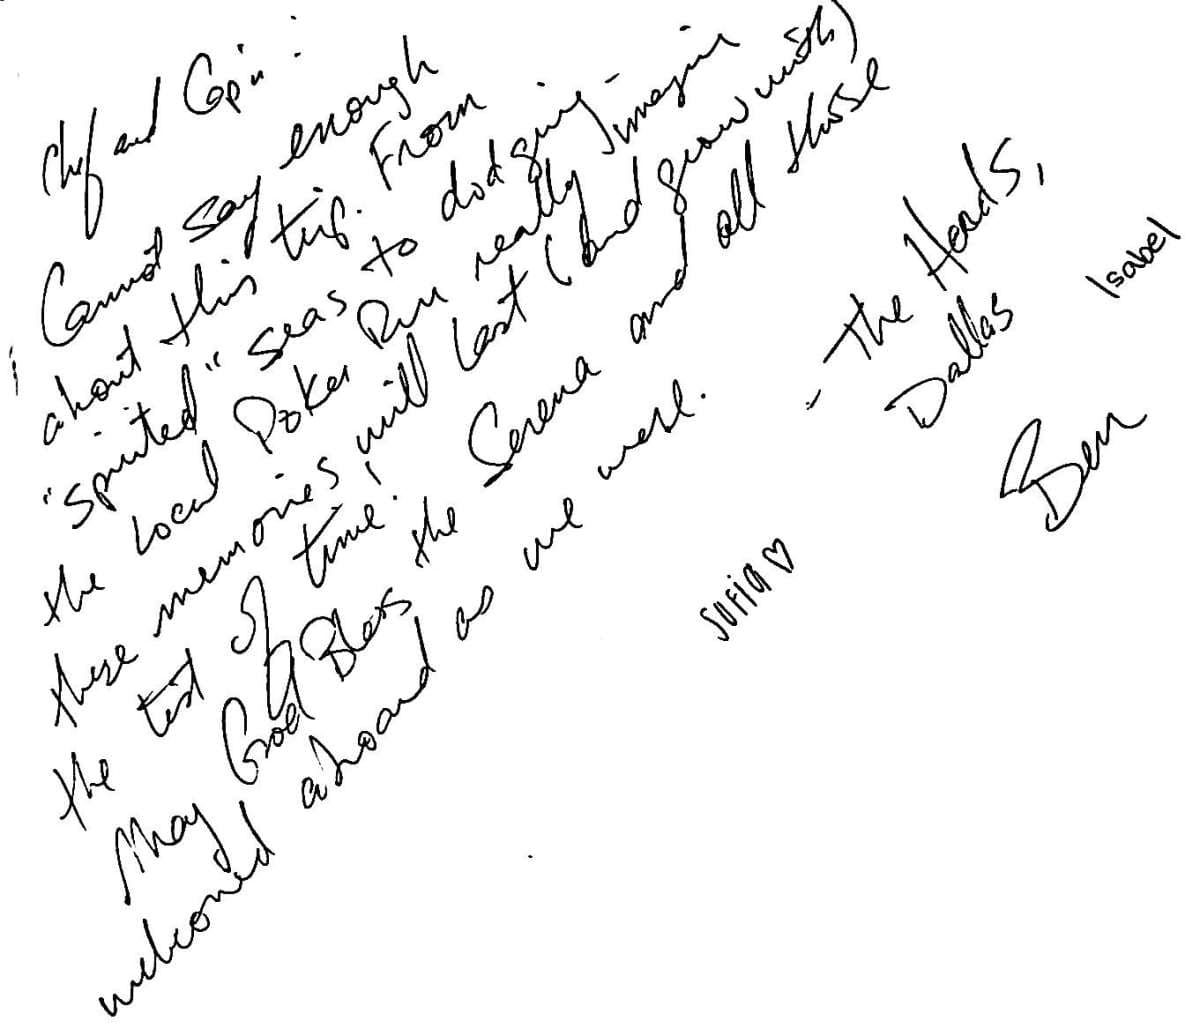 Chef and Cap'n:
Cannot say enough
about this trip. From
"spirited" seas to dodging
the local Poker Run really imagine
these memories will last (and grow with)
the test of time!
May God Bless the Serena and all those
welcomed aboard as we were.
- The Heads,
Dallas
Isabel
Ben
SOFIA ♡